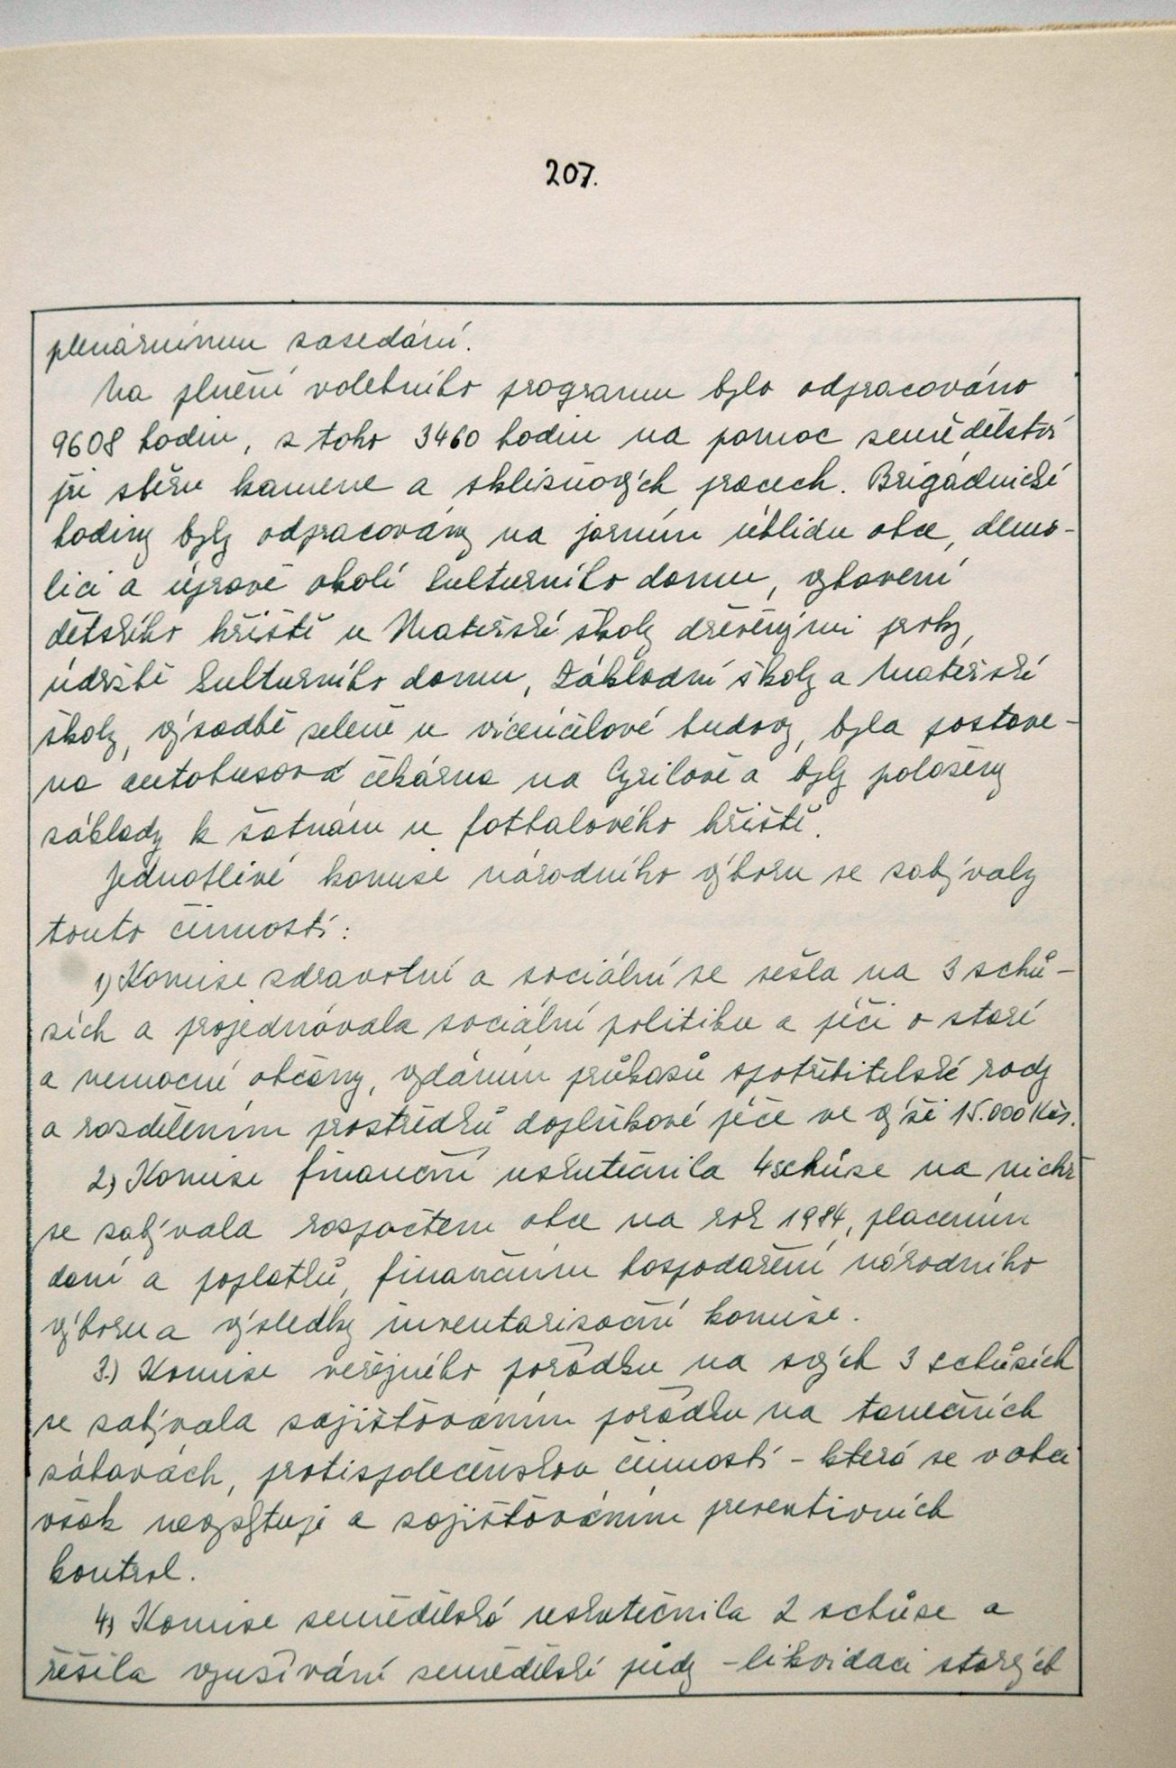 207.
plenárnímu zasedání.
Na plnění volebního programu bylo odpracováno
9608 hodin, z toho 3460 hodin na pomoc zemědělství
při sběru kamene a sklizňových pracech. Brigádnické
hodiny byly odpracovány na jarním úklidu obce, demo-
lici a úpravě okolí kulturního domu, vybavení
dětského hřiště u Mateřské školy dřevěnými prvky,
údržbě kulturního domu, Základní školy a Mateřské
školy, výsadbě zeleně u víceúčelové budovy, byla postave-
na autobusová čekárna na Cyrilově a byly položeny
základy k šatnám u fotbalového hřiště.
Jednotlivé komise národního výboru se zabývaly
touto činností:
1) Komise zdravotní a sociální se sešla na 3 schů-
zích a projednávala sociální politiku a péči o staré
a nemocné občany, vydáním průkazů spotřebitelské rady
a rozdělením prostředků doplňkové péče ve výši 15.000 Kčs.
2) Komise finanční uskutečnila 4 schůze na nichž
se zabývala rozpočtem obce na rok 1984, placením
daní a poplatků, finančním hospodaření národního
výboru a výsledky inventarizační komise.
3.) Komise veřejného pořádku na svých 3 schůzích
se zabývala zajišťováním pořádku na tanečních
zábavách, protispolečenskou činností - která se v obci
však nevyskytuje a zajišťováním preventivních
kontrol.
4) Komise zemědělská uskutečnila 2 schůze a
řešila využívání zemědělské půdy - likvidaci starých